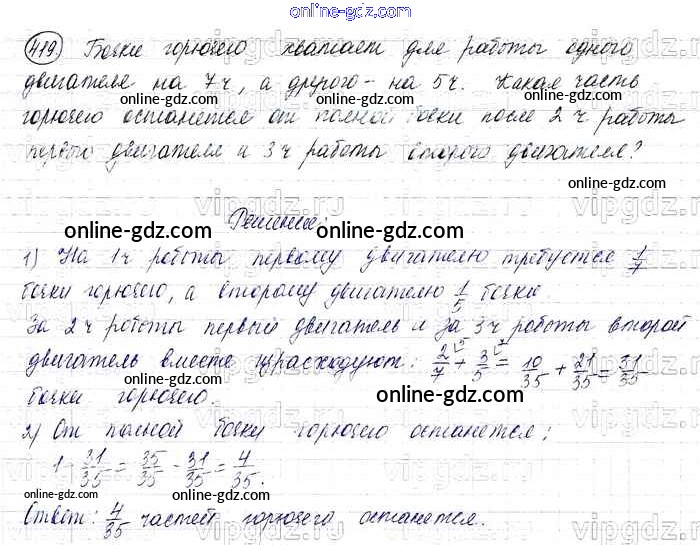 online-gdz.com
419. Бочки горючего хватает для работы одного
двигателя на 7ч, а другого - на 5ч. Какая часть
online-gdz.com online-gdz.com online-gdz.com
горючего останется от полной бочки после 2ч работы
первого двигателя и 3ч работы второго двигателя?
vipgdz.com vipgdz.com vipgdz.com
online-gdz.com Решение: online-gdz.com
1) На 1ч работы первому двигателю требуется 1/7
бочки горючего, а второму двигателю 1/5 бочки
online-gdz.com online-gdz.com
За 2ч работы первый двигатель и за 3ч работы второй
двигатель вместе израсходуют: 2/7 + 3/5 = 10/35 + 21/35 = 31/35
бочки горючего. online-gdz.com
2) От полной бочки горючего останется:
1 - 31/35 = 35/35 - 31/35 = 4/35.
online-gdz.com online-gdz.com online-gdz.com
Ответ: 4/35 частей горючего останется.
online-gdz.com